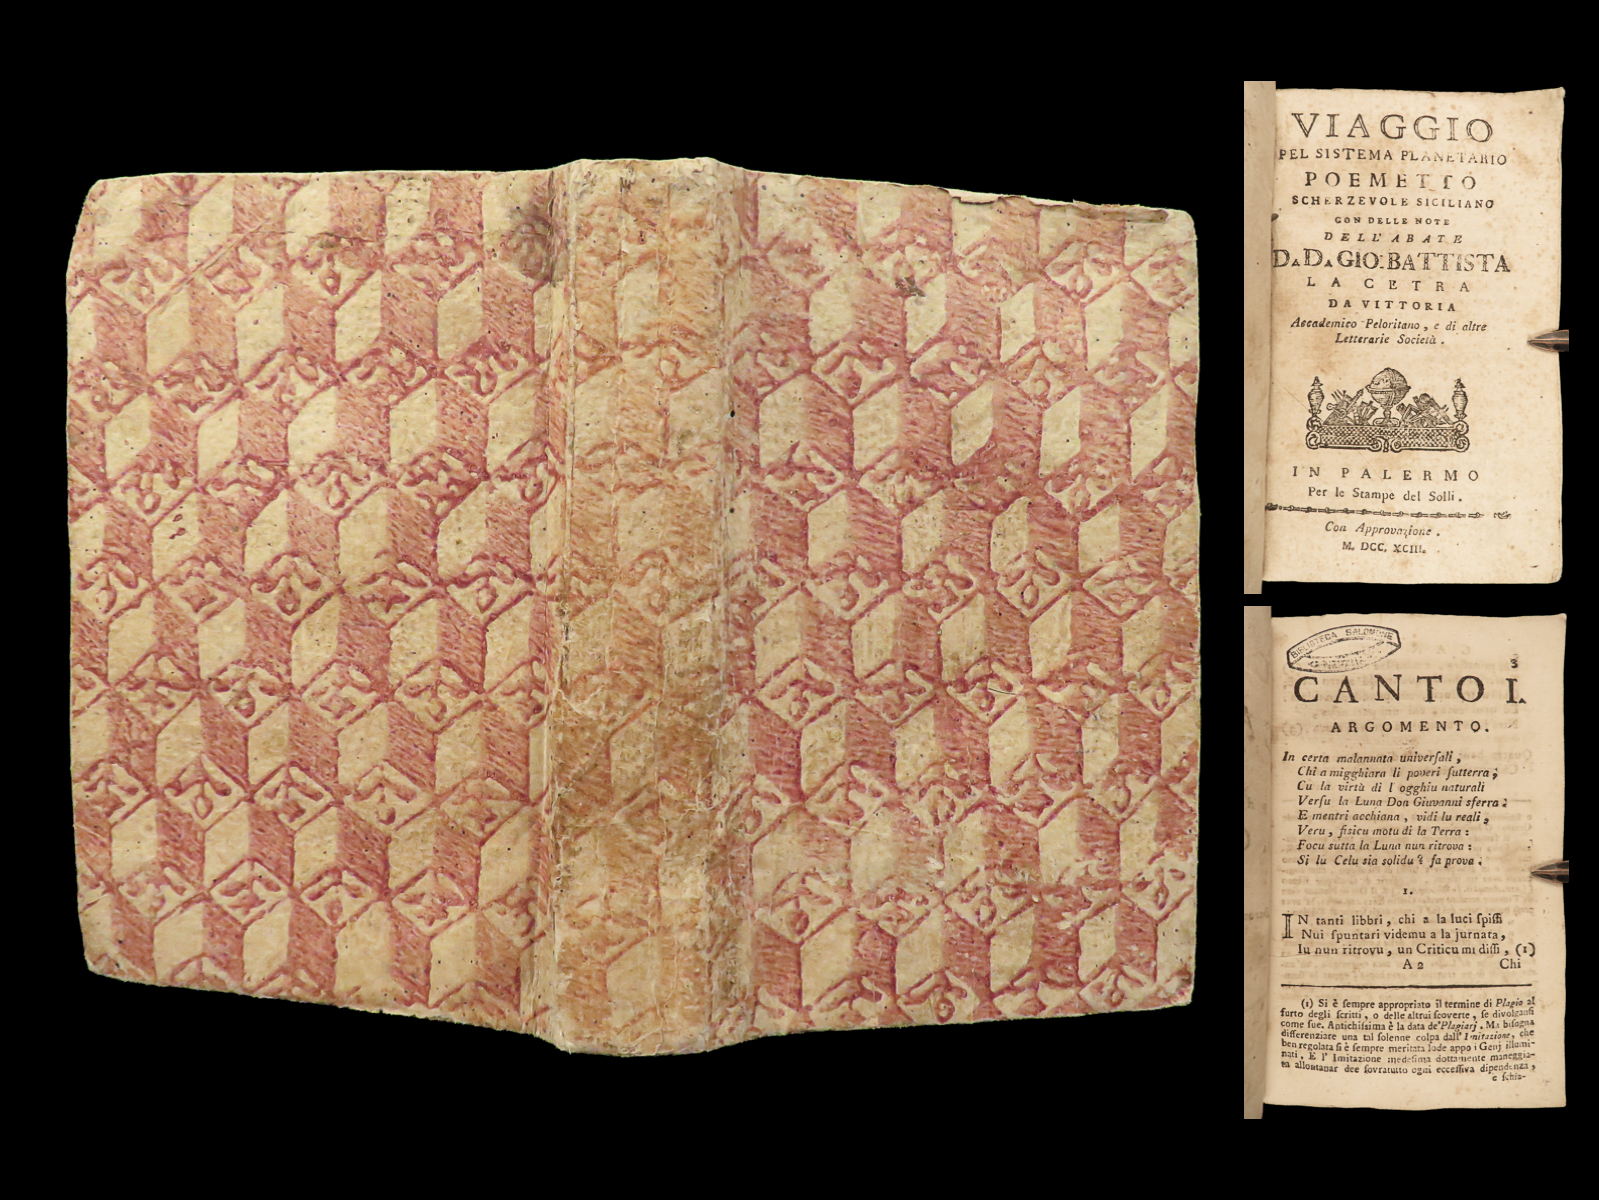 VIAGGIO
PEL SISTEMA PLANETARIO
POEMETTO
SCHERZEVOLE SICILIANO
CON DELLE NOTE
DELL' ABATE
D. D. GIO: BATTISTA
LA CETRA
DA VITTORIA
Accademico Peloritano, e di altre
Letterarie Società.
IN PALERMO
Per le Stampe del Solli.
Con Approvazione.
M. DCC. XCIII.
BIBLIOTECA SALOMONE
3
CANTO I.
ARGOMENTO.
In certa malannata universali,
Chi a migghiara li poveri sutterra;
Cu la virtù di l' ogghiu naturali
Versu la Luna Don Giuvanni sferra:
E mentri acchiana, vidi lu reali,
Veru, fisicu motu di la Terra:
Focu sutta la Luna nun ritrova:
Si lu Celu sia solidu fa prova.
1.
IN tanti libbri, chi a la luci spissi
Nui spuntari videmu a la jurnata,
Iu nun ritrovu, un Criticu mi dissi, (1)
A 2 Chi
(1) Si è sempre appropriato il termine di Plagio al
furto degli scritti, o delle altrui scoverte, se divolgansi
come sue. Antichissima è la data de' Plagiarj. Ma bisogna
differenziare una tal solenne colpa dall' Imitazione, che
ben regolata si è sempre meritata lode appo i Genj illumi-
nati, E l' Imitazione medesima dottamente maneggia-
ta allontanar dee sovratutto ogni eccessiva dipendenza,
e schia-